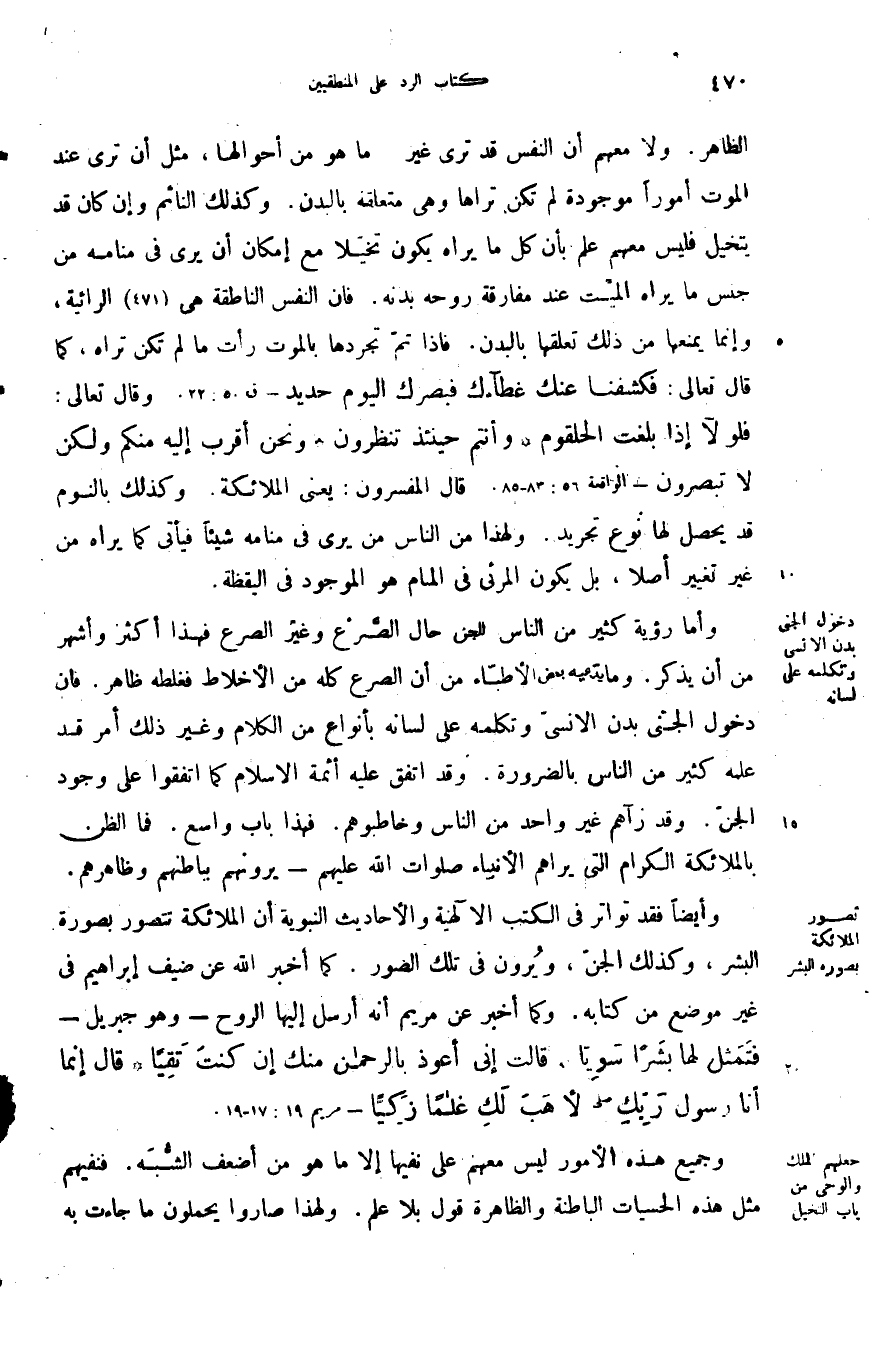 ٤٧٠
كتاب الرد على المنطقيين
الظاهر. ولا معهم أن النفس قد ترى غير ما هو من أحوالها، مثل أن ترى عند
الموت أموراً موجودة لم تكن تراها وهى متعلقة بالبدن. وكذلك النائم وإن كان قد
يتخيل فليس معهم علم بأن كل ما يراه يكون تخيّلا مع إمكان أن يرى فى منامه من
جنس ما يراه الميّت عند مفارقة روحه بدنه. فان النفس الناطقة هى (٤٧١) الرائية،
٥ وإنما يمنعها من ذلك تعلقها بالبدن. فاذا تمّ تجردها بالموت رأت ما لم تكن تراه، كما
قال تعالى: فكشفنا عنك غطآءك فبصرك اليوم حديد – ق ٥٠: ٢٢. وقال تعالى:
فلولآ إذا بلغت الحلقوم * وأنتم حينئذ تنظرون * ونحن أقرب إليه منكم ولكن
لا تبصرون – الواقعة ٥٦: ٨٣-٨٥. قال المفسرون: يعنى الملائكة. وكذلك بالنوم
قد يحصل لها نوع تجريد. ولهذا من الناس من يرى فى منامه شيئاً فيأتى كما يراه من
١٠ غير تغيير أصلا، بل يكون المرئى فى المنام هو الموجود فى اليقظة.
دخول الجنى
بدن الانسى
وتكلمه على
لسانه
وأما رؤية كثير من الناس للجن حال الصَّرْع وغير الصرع فهذا أكثر وأشهر
من أن يذكر. وما يدعيه بعض الأطبّاء من أن الصرع كله من الأخلاط فغلطه ظاهر. فان
دخول الجنّى بدن الانسىّ وتكلمه على لسانه بأنواع من الكلام وغير ذلك أمر قد
علمه كثير من الناس بالضرورة. وقد اتفق عليه أئمة الاسلام كما اتفقوا على وجود
١٥ الجنّ. وقد رآهم غير واحد من الناس وخاطبوهم. فهذا باب واسع. فما الظن
بالملائكة الكرام التى يراهم الأنبياء صلوات الله عليهم – يرونهم بباطنهم وظاهرهم.
تصور
الملائكة
بصورة البشر
وأيضاً فقد تواتر فى الكتب الالٓهية والأحاديث النبوية أن الملائكة تتصور بصورة
البشر، وكذلك الجنّ، ويُرون فى تلك الصور. كما أخبر الله عن ضيف إبراهيم فى
غير موضع من كتابه. وكما أخبر عن مريم أنه أرسل إليها الروح – وهو جبريل –
٢٠ فتَمَثل لها بشَرًا سَوِيّا. قالت إنى أعوذ بالرحمٰن منك إن كنتَ تَقِيًّا * قال إنما
أنا رسول رَبِّكِ صلى لأهَبَ لَكِ غلٰمًا زَكِيًّا – مريم ١٩: ١٧-١٩.
جعلهم الملك
والوحى من
باب التخيل
وجميع هذه الأمور ليس معهم على نفيها إلا ما هو من أضعف الشُّبَه. فنفيهم
مثل هذه الحسيات الباطنة والظاهرة قول بلا علم. ولهذا صاروا يحملون ما جاءت به